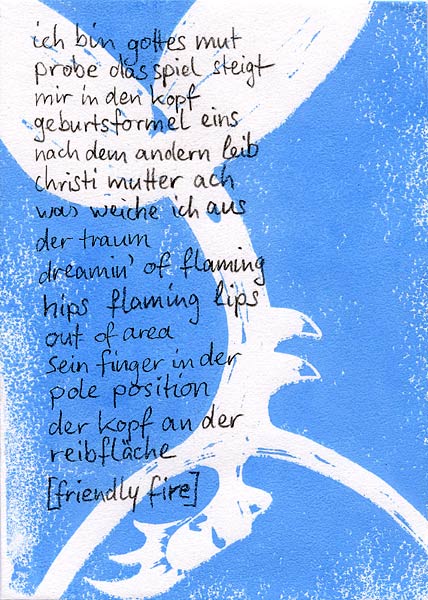 ich bin gottes mut
probe das spiel steigt
mir in den kopf
geburtsformel eins
nach dem andern leib
christi mutter ach
was weiche ich aus
der traum
dreamin' of flaming
hips flaming lips
out of area
sein finger in der
pole position
der kopf an der
reibfläche
[friendly fire]